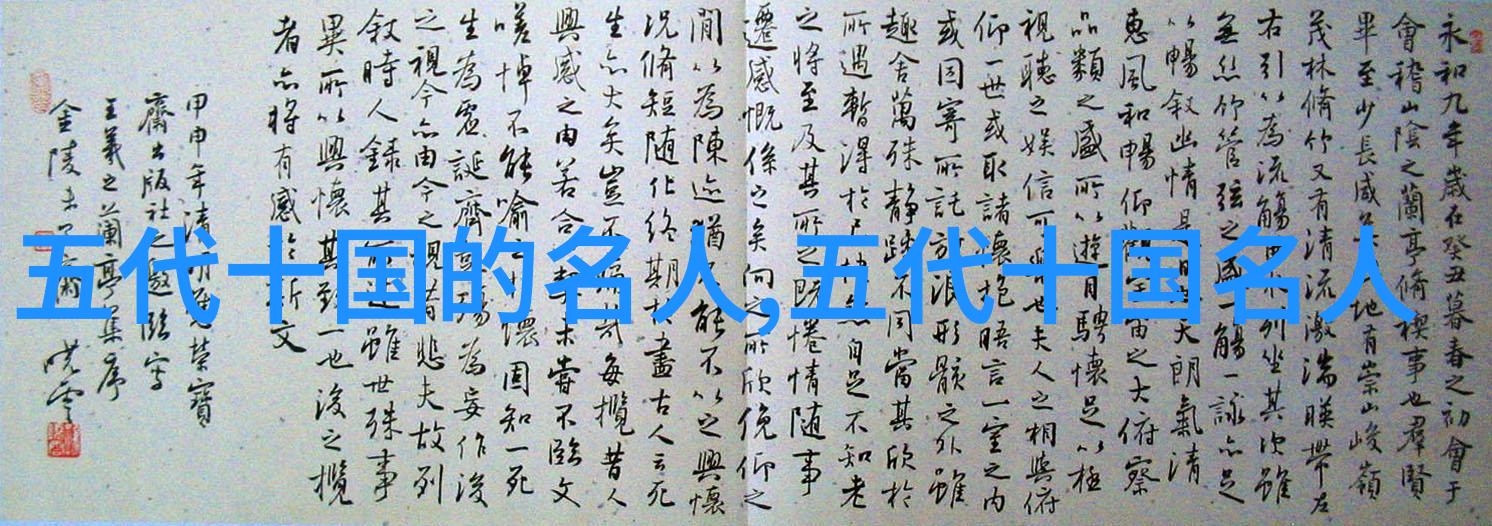 五代十国的名人,五代十国名人
永和九年歲在癸丑暮春之初會于
會稽山陰之蘭亭脩稧事也羣賢
畢至少長咸集此地有崇山峻嶺
茂林脩竹又有清流激湍暎帶左
右引以為流觴曲水列坐其次雖
無絲竹管弦之盛一觴一詠亦足
以暢敘幽情是日也天朗氣清
惠風和暢仰觀宇宙之大俯察
品類之盛所以遊目騁懷足以極
視聽之娛信可樂也夫人之相與俯
仰一世或取諸懷抱晤言一室之內
或因寄所託放浪形骸之外雖
趣舍萬殊靜躁不同當其欣於
所遇暫得於己快然自足不知老
之將至及其所之既惓情隨事
遷感慨係之矣向之所欣俛仰之
閒以為陳迹猶不能不以之興懷
況脩短隨化終期於盡古人云死
生亦大矣豈不痛哉每攬昔人
興感之由若合一契未嘗不臨文
嗟悼不能喻之於懷固知一死
生為虛誕齊彭殤為妄作後
之視今亦由今之視昔悲夫故列
敘時人錄其所述雖世殊事
異所以興懷其致一也後之攬
者亦將有感於斯文
甲申年清明應榮寶
齋出版社之邀臨寫
王羲之蘭亭集序
金陵